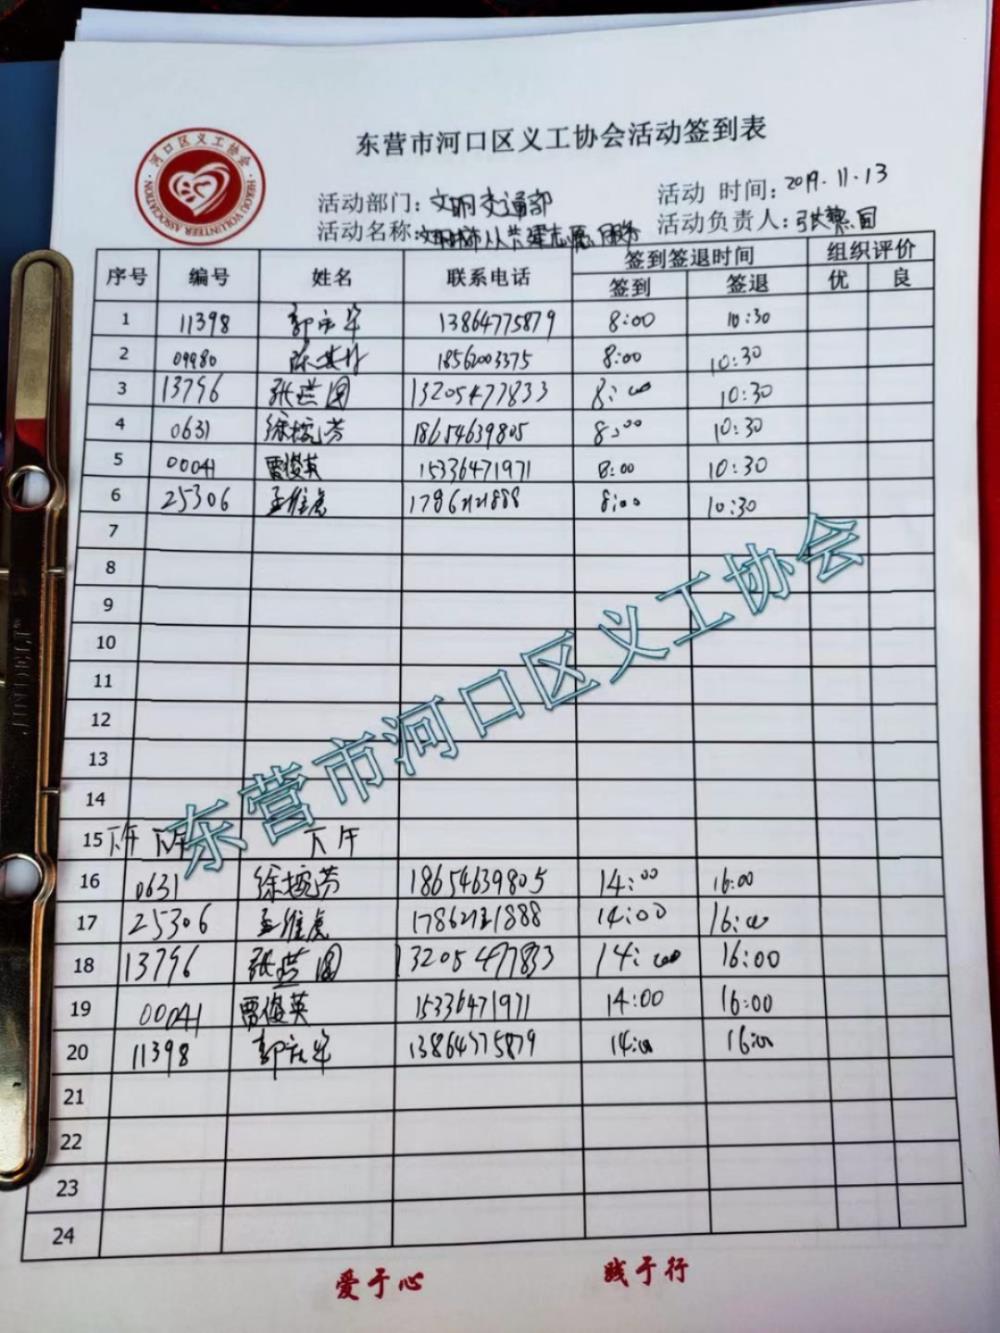 东营市河口区义工协会活动签到表
河口区义工协会
HEKOU VOLUNTEER ASSOCIATION
活动部门：文明交通部 活动 时间：2019.11.13
活动名称：文明城市 志愿服务 活动负责人：张
序号 编号 姓名 联系电话 签到签退时间 组织评价
签到 签退 优 良
1 11398 郭 军 13864775879 8:00 10:30
2 09980 陈 18562003375 8:00 10:30
3 13796 张 圆 13205477833 8:00 10:30
4 0631 徐婉芳 18654639805 8:00 10:30
5 00041 贾俊英 15336471971 8:00 10:30
6 25306 孟维虎 1786 1888 8:00 10:30
7
8
9
10
11
12
13
14
15 下午 下午 下午
16 0631 徐婉芳 18654639805 14:00 16:00
17 25306 孟维虎 1786 1888 14:00 16:00
18 13796 张 圆 13205477833 14:00 16:00
19 00041 贾俊英 15336471971 14:00 16:00
20 11398 郭 军 13864775879 14:00 16:00
21
22
23
24
东营市河口区义工协会
爱于心 践于行